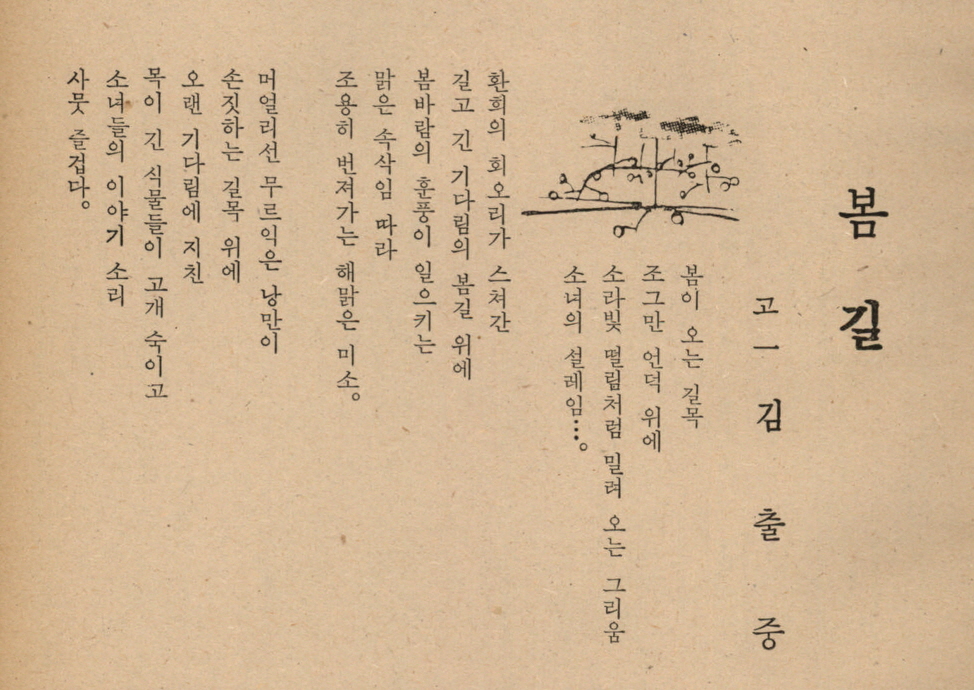 봄 길
고一 김 출 중
봄이 오는 길목
조그만 언덕 위에
소라빛 떨림처럼 밀려 오는 그리움
소녀의 설레임…。
환희의 회오리가 스쳐간
길고 긴 기다림의 봄길 위에
봄바람의 훈풍이 일으키는
맑은 속삭임 따라
조용히 번져가는 해맑은 미소。
머얼리선 무르익은 낭만이
손짓하는 길목 위에
오랜 기다림에 지친
목이 긴 식물들이 고개 숙이고
소녀들의 이야기 소리
사뭇 즐겁다。